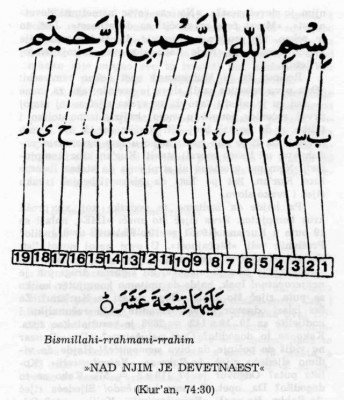 بِسْمِ اللّٰهِ الرَّحْمٰنِ الرَّحِيْمِ
ب س م ا ل ل ه ا ل ر ح م ن ا ل ر ح ي م
19 18 17 16 15 14 13 12 11 10 9 8 7 6 5 4 3 2 1
عَلَيْهَا تِسْعَةَ عَشَرَ
Bismillahi-rrahmani-rrahim
»NAD NJIM JE DEVETNAEST«
(Kur'an, 74:30)